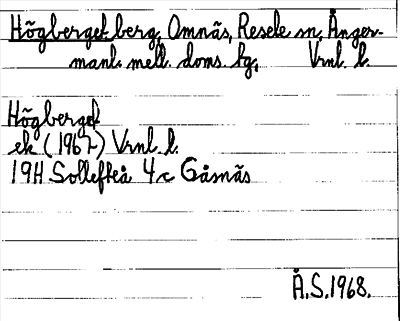 Högberget berg, Omnäs, Resele sn, Ånger-
manl. mell. doms. fg, Vrnl. l.
Högberget
ek (1967) Vrnl. l.
19H Sollefteå 4c Gåsnäs
Å.S. 1968.